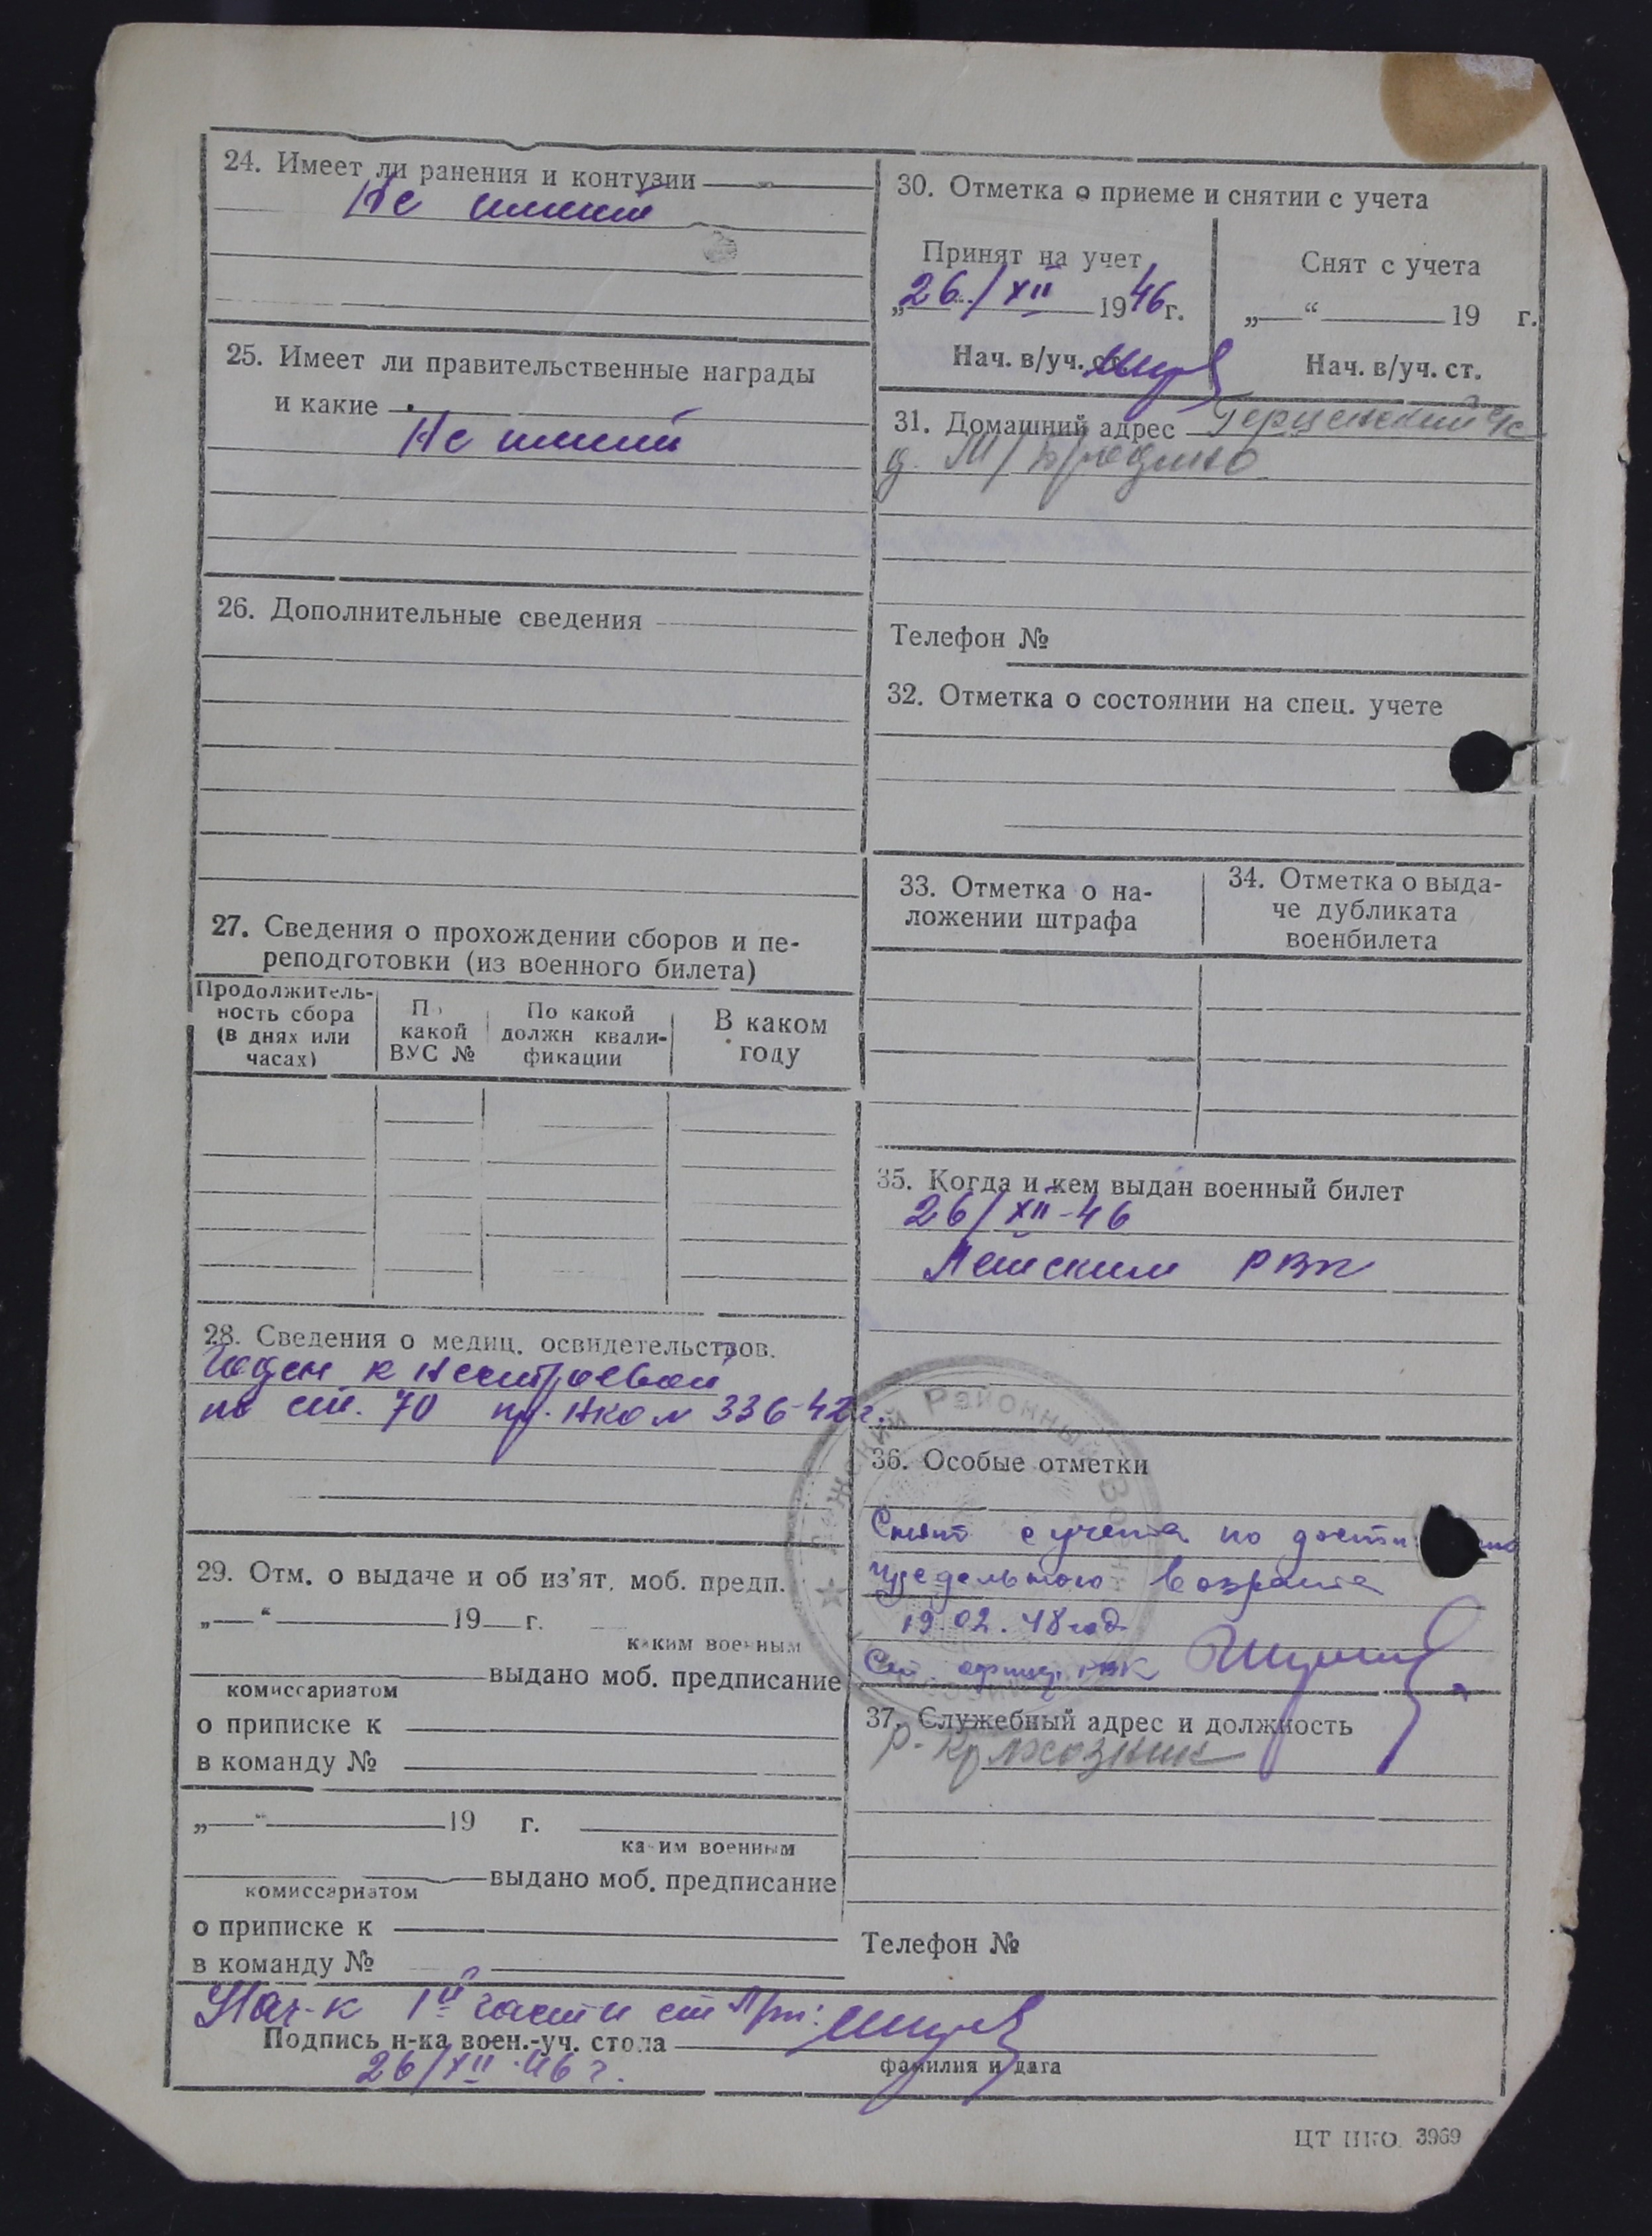 24. Имеет ли ранения и контузии
Не имеет
25. Имеет ли правительственные награды
и какие
Не имеет
26. Дополнительные сведения
27. Сведения о прохождении сборов и пе-
реподготовки (из военного билета)
Продолжитель-
ность сбора
(в днях или
часах)
По
какой
ВУС №
По какой
должн квали-
фикации
В каком
году
28. Сведения о медиц. освидетельствов.
Годен к нестроевой
по ст. 70 пр. НКО № 336-42г.
29. Отм. о выдаче и об из'ят. моб. предп.
„—“ 19 г.
каким военным
выдано моб. предписание
комиссариатом
о приписке к
в команду №
„—“ 19 г.
каким военным
выдано моб. предписание
комиссариатом
о приписке к
в команду №
30. Отметка о приеме и снятии с учета
Принят на учет
„26/XII 1946г.
Нач. в/уч. ст.
Снят с учета
„—“ 19 г.
Нач. в/уч. ст.
31. Домашний адрес
д. М/
Телефон №
32. Отметка о состоянии на спец. учете
33. Отметка о на-
ложении штрафа
34. Отметка о выда-
че дубликата
военбилета
35. Когда и кем выдан военный билет
26/XII-46
РВК
36. Особые отметки
Снят с учета по дости
предельного возраста
19.02.48 год
Ст. офицер РВК
37. Служебный адрес и должность
Телефон №
Районный Воен
Нач-к 1й части ст
Подпись н-ка воен.-уч. стола
26/XII-46 г.
фамилия и дата
ЦТ НКО 3969